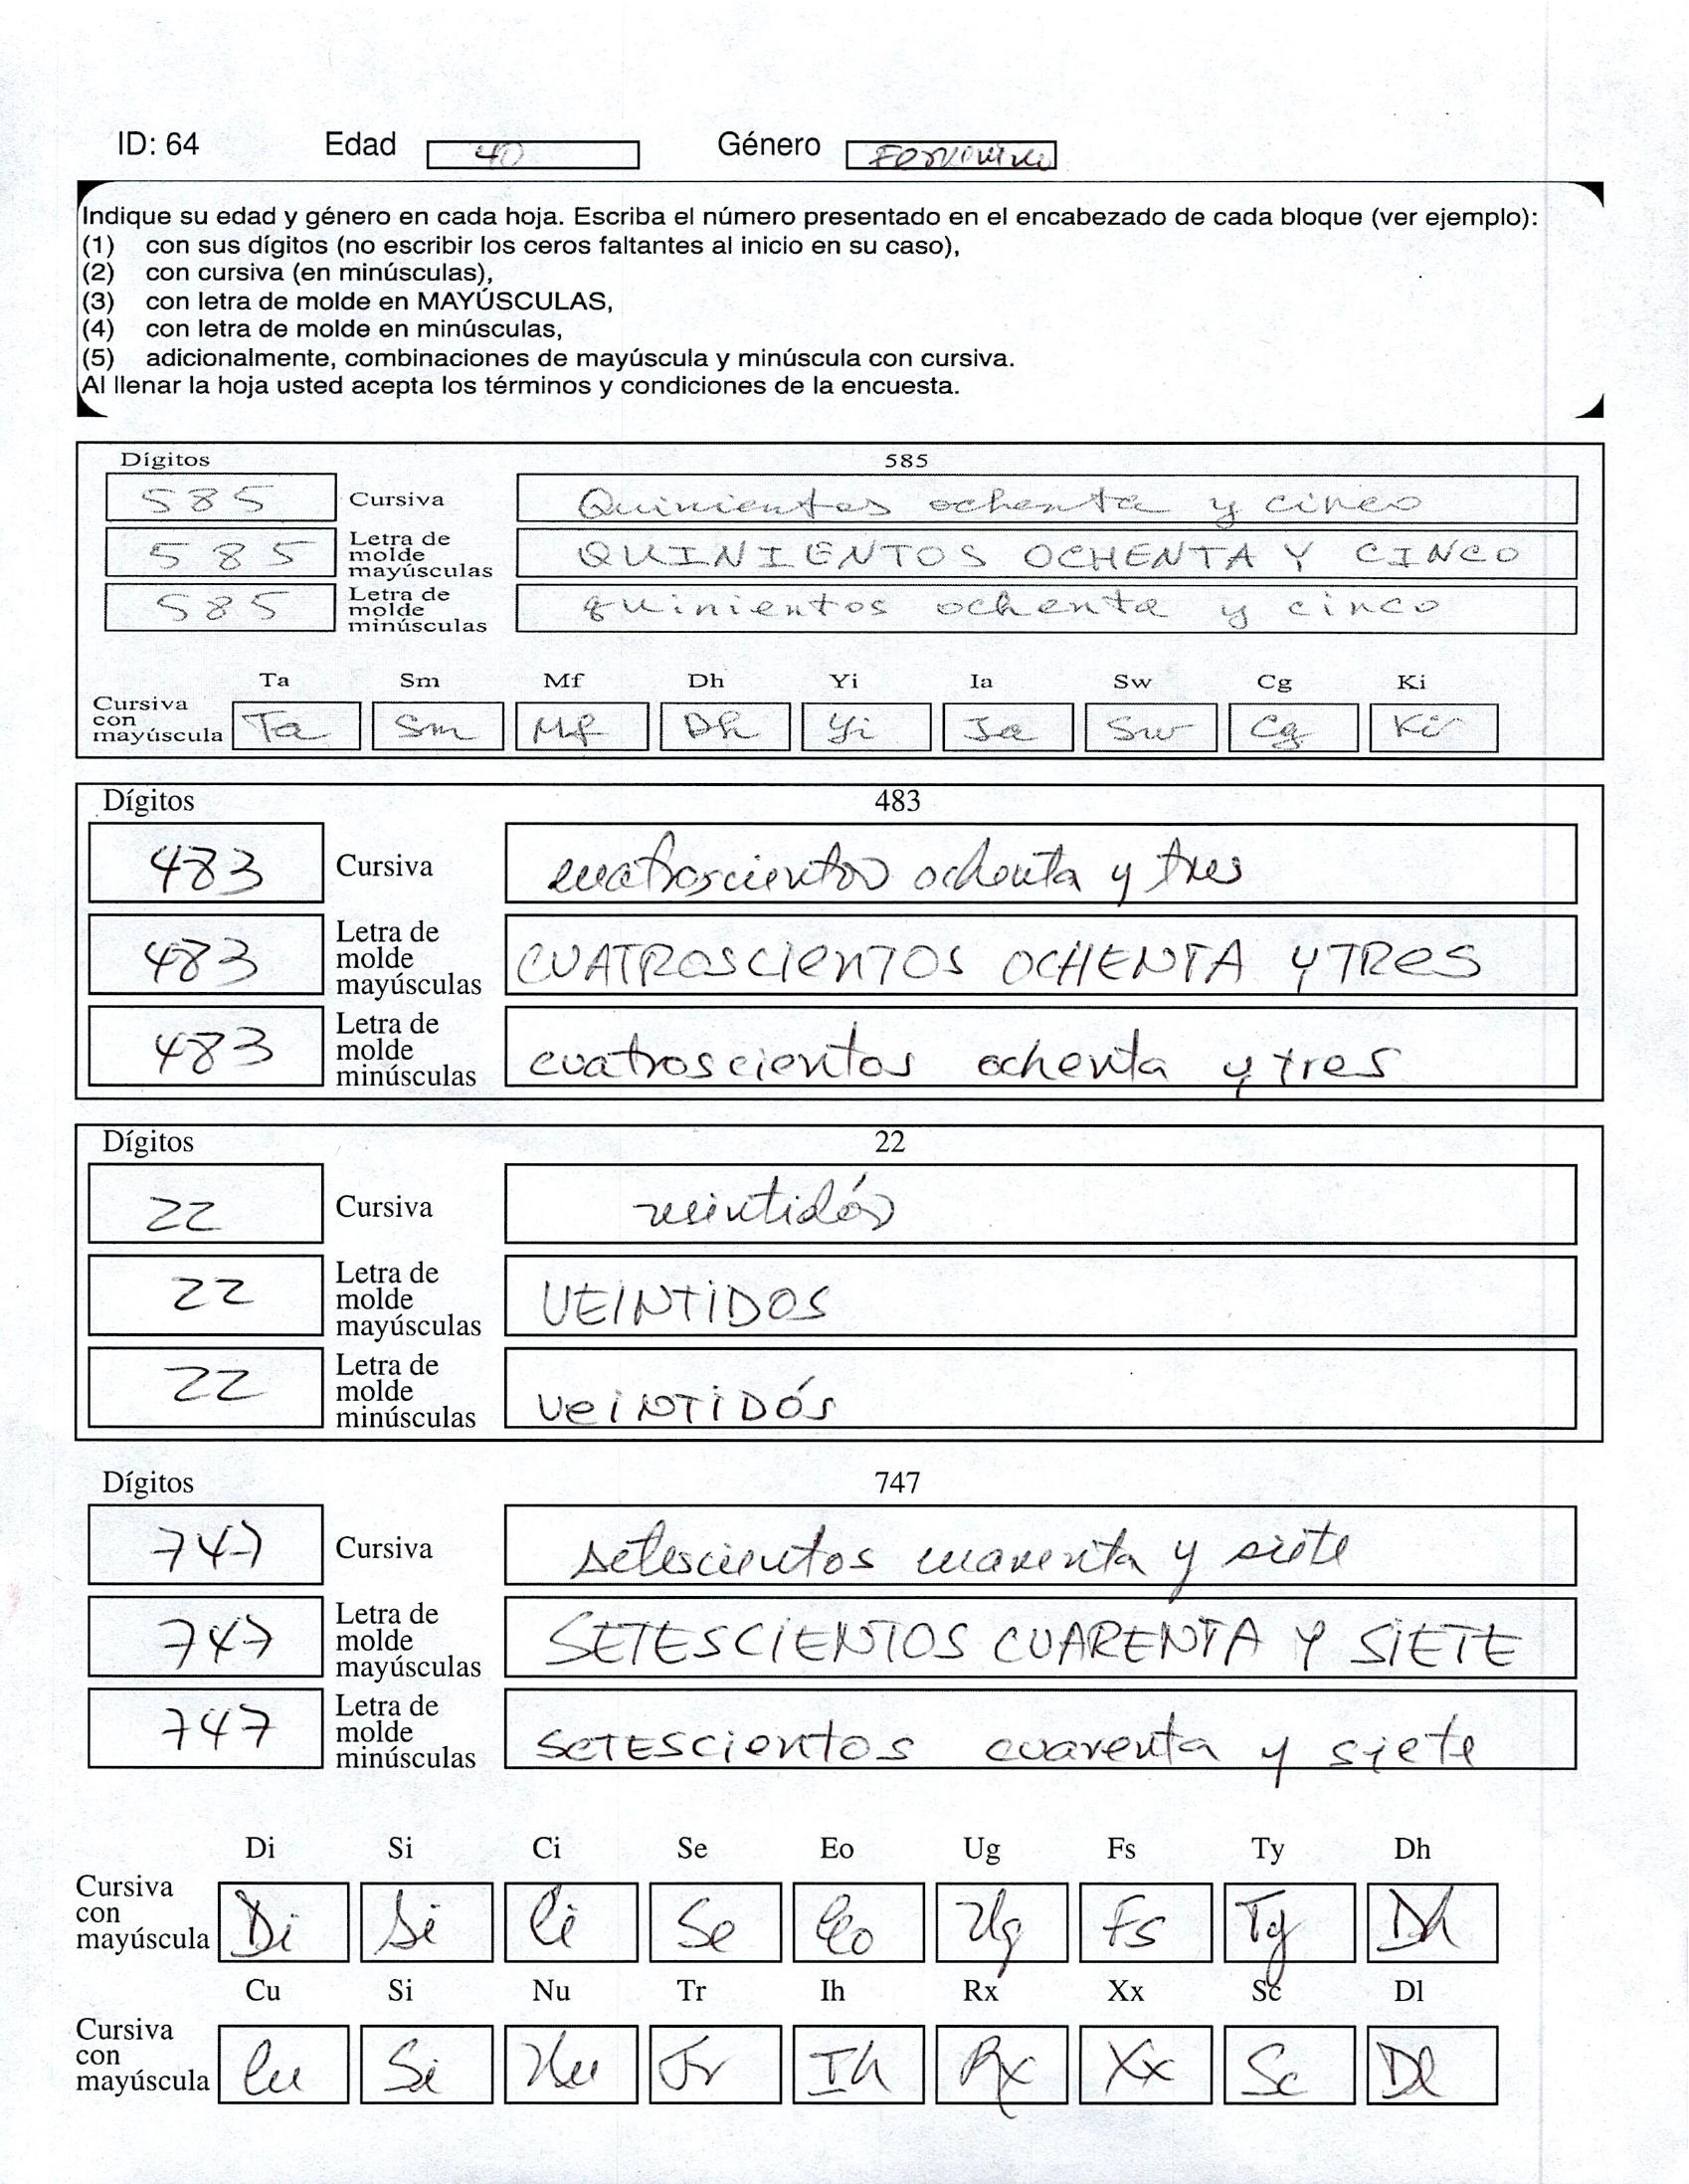 ID: 64 Edad 40 Género Femenino
Indique su edad y género en cada hoja. Escriba el número presentado en el encabezado de cada bloque (ver ejemplo):
(1) con sus dígitos (no escribir los ceros faltantes al inicio en su caso),
(2) con cursiva (en minúsculas),
(3) con letra de molde en MAYÚSCULAS,
(4) con letra de molde en minúsculas,
(5) adicionalmente, combinaciones de mayúscula y minúscula con cursiva.
Al llenar la hoja usted acepta los términos y condiciones de la encuesta.
Dígitos 585
585 Cursiva Quinientos ochenta y cinco
585 Letra de molde mayúsculas QUINIENTOS OCHENTA Y CINCO
585 Letra de molde minúsculas quinientos ochenta y cinco
Ta Sm Mf Dh Yi Ia Sw Cg Ki
Cursiva con mayúscula Ta Sm Mf Dh Yi Ia Sw Cg Ki
Dígitos 483
483 Cursiva cuatroscientos ochenta y tres
483 Letra de molde mayúsculas CUATROSCIeNTOS OCHENTA Y TReS
483 Letra de molde minúsculas cuatroscientos ochenta y tres
Dígitos 22
22 Cursiva veintidós
22 Letra de molde mayúsculas VEINTiDOS
22 Letra de molde minúsculas veiNTiDós
Dígitos 747
747 Cursiva setescientos cuarenta y siete
747 Letra de molde mayúsculas SETESCiENTOS CUARENTA Y SiETE
747 Letra de molde minúsculas seTEScientos cuarenta y siete
Di Si Ci Se Eo Ug Fs Ty Dh
Cursiva con mayúscula Di Si Ci Se Eo Ug Fs Ty Dh
Cu Si Nu Tr Ih Rx Xx Sc Dl
Cursiva con mayúscula Cu Si Nu Tr Ih Rx Xx Sc Dl